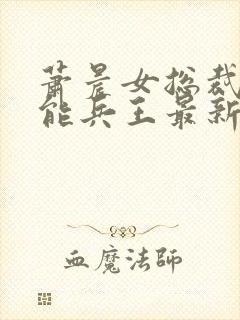 萧晨女总裁
能兵王最新
血魔法師